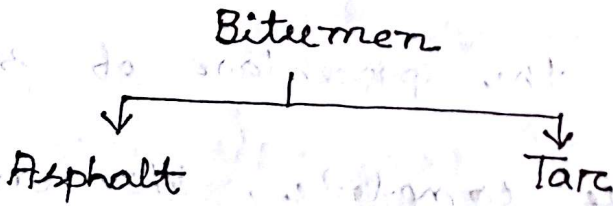 Bitumen
Asphalt Tar